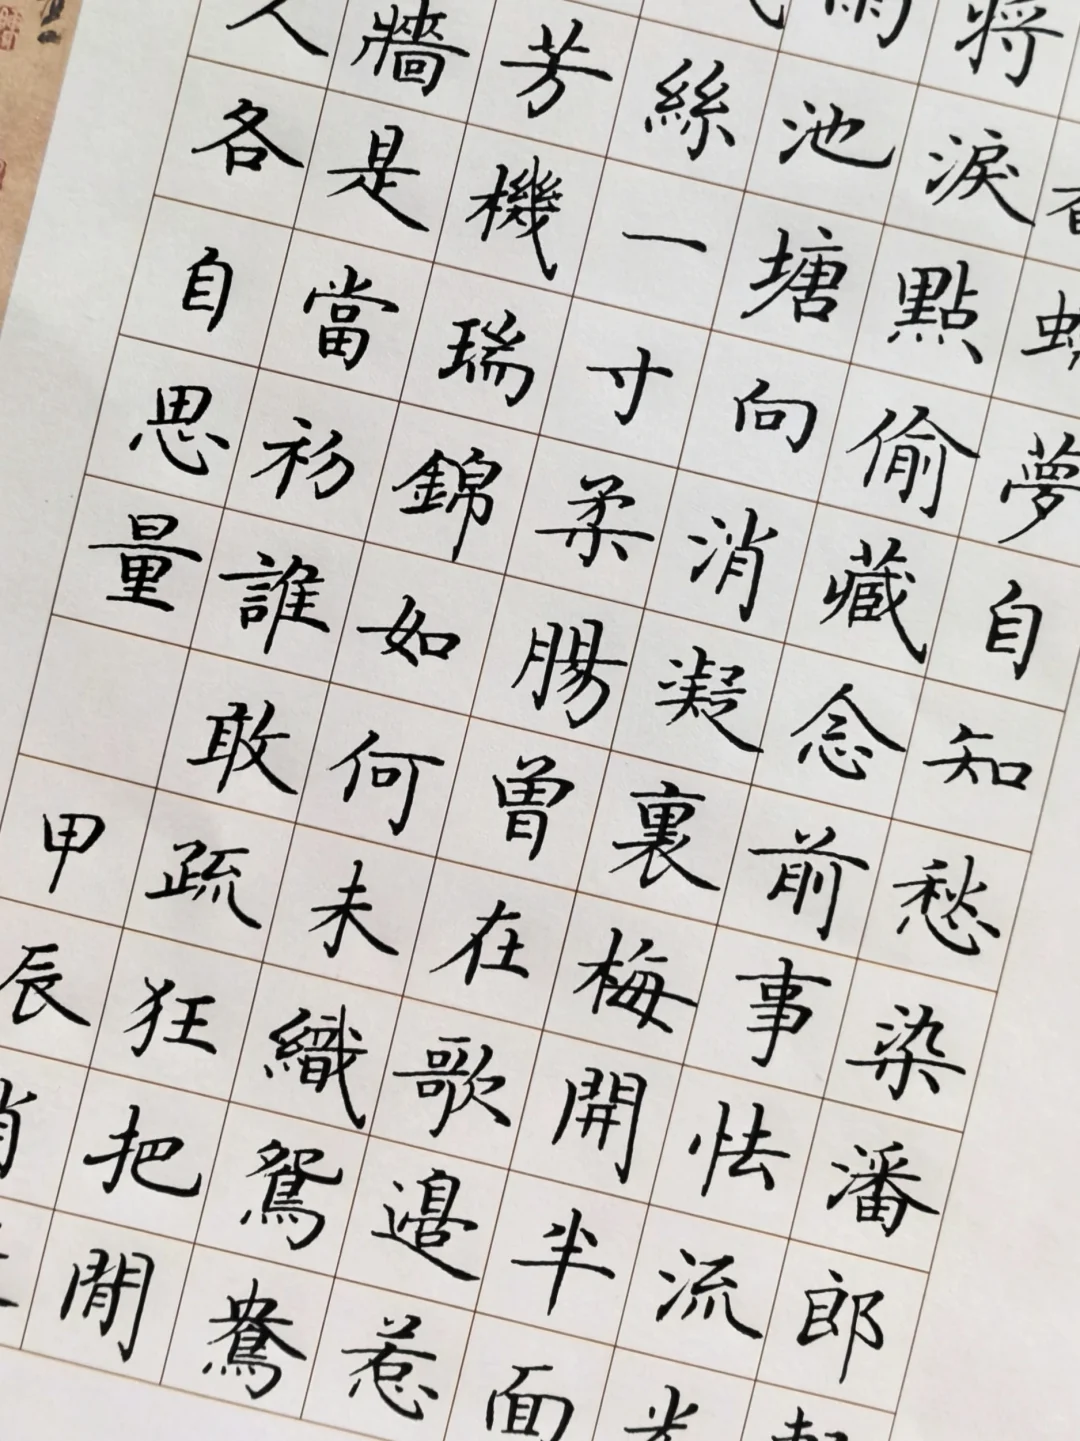 夢自知愁染潘郎
將淚點偷藏念前事怯流光
雨池塘向消凝裏梅開半面
絲一寸柔腸曾在歌邊惹
芳機瑞錦如何未織鴛鴦
牆是當初誰敢疏狂把閒
人各自思量
甲辰